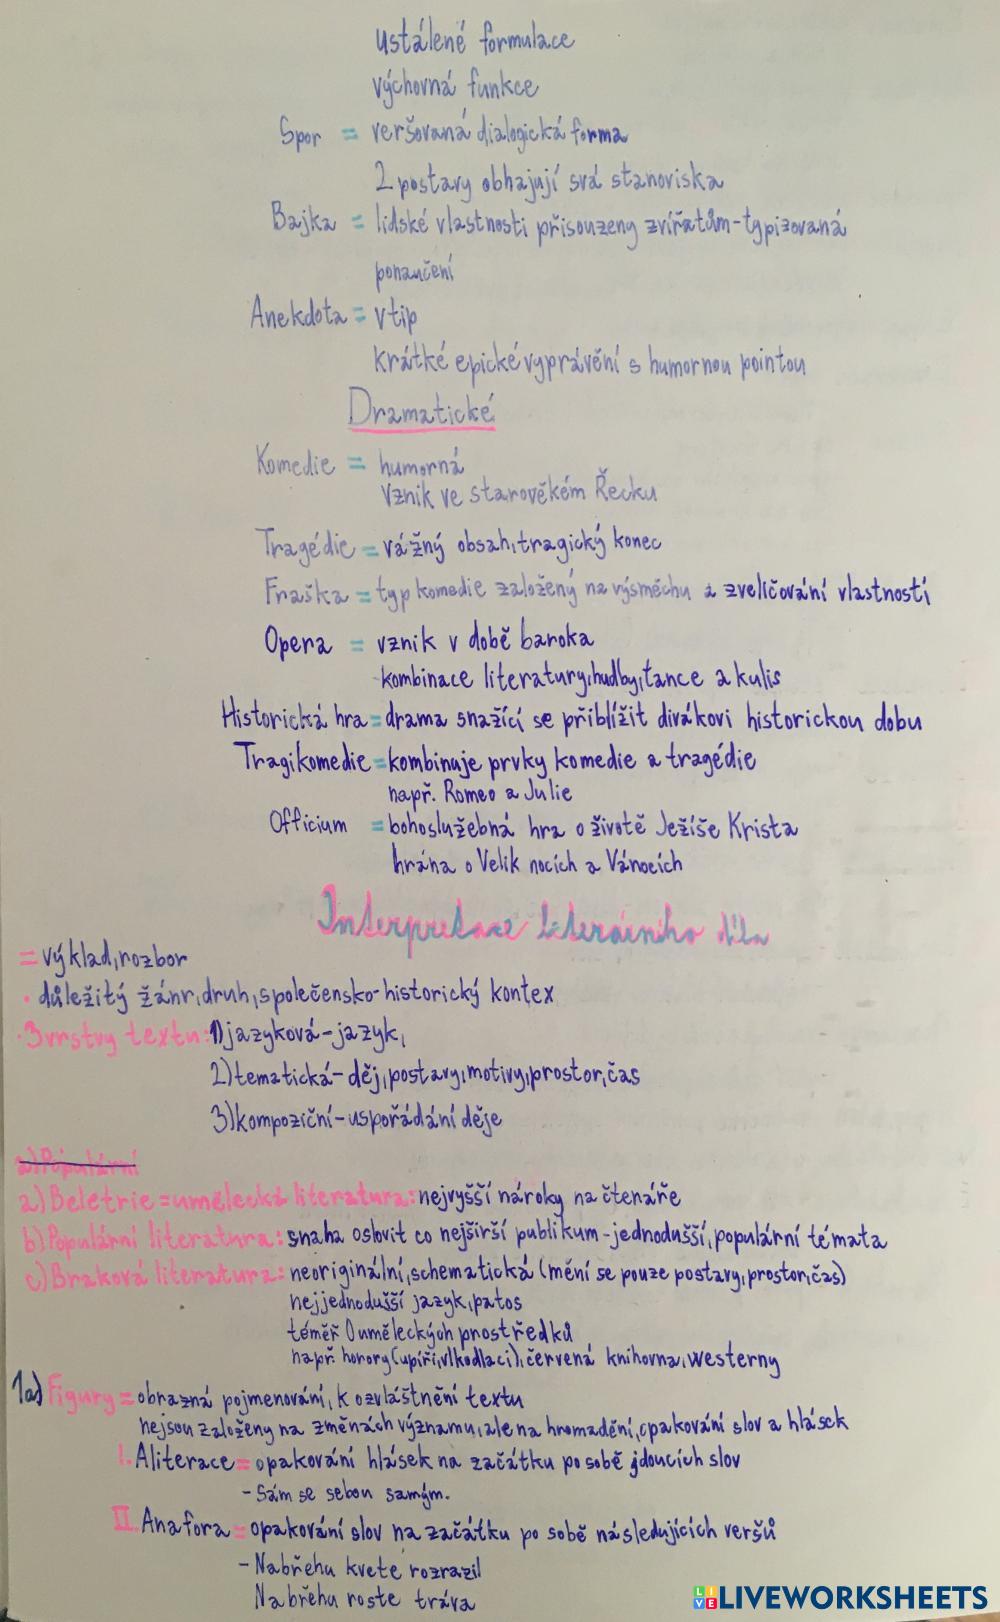 ustálené formulace
výchovná funkce
Spor = veršovaná dialogická forma
2 postavy obhajují svá stanoviska
Bajka = lidské vlastnosti přisouzeny zvířatům-typizovaná
ponaučení
Anekdota = vtip
krátké epické vyprávění s humornou pointou
Dramatické
Komedie = humorná
vznik ve starověkém Řecku
Tragédie = vážný obsah, tragický konec
Fraška = typ komedie založený na výsměchu a zveličování vlastností
Opera = vznik v době baroka
kombinace literatury, hudby, tance a kulis
Historická hra = drama snažící se přiblížit divákovi historickou dobu
Tragikomedie = kombinuje prvky komedie a tragédie
např. Romeo a Julie
Officium = bohoslužebná hra o životě Ježíše Krista
hrána o Velik nocích a Vánocích
Interpretace literárního díla
= výklad, rozbor
· důležitý žánr, druh, společensko-historický kontex
· 3 vrstvy textu: 1) jazyková-jazyk,
2) tematická-děj, postavy, motivy, prostor, čas
3) kompoziční-uspořádání děje
a) Populární
a) Beletrie = umělecká literatura: nejvyšší nároky na čtenáře
b) Populární literatura: snaha oslovit co nejširší publikum-jednodušší, populární témata
c) Braková literatura: neoriginální, schematická (mění se pouze postavy, prostor, čas)
nejjednodušší jazyk, patos
téměř 0 uměleckých prostředků
např. horory (upíři, vlkodlaci), červená knihovna, westerny
1a) Figury = obrazná pojmenování, k ozvláštnění textu
nejsou založeny na změnách významu, ale na hromadění, opakování slov a hlásek
I. Aliterace = opakování hlásek na začátku po sobě jdoucích slov
- Sám se sebou samým.
II. Anafora = opakování slov na začátku po sobě následujících veršů
- Na břehu kvete rozrazil
Na břehu roste tráva
LIVEWORKSHEETS